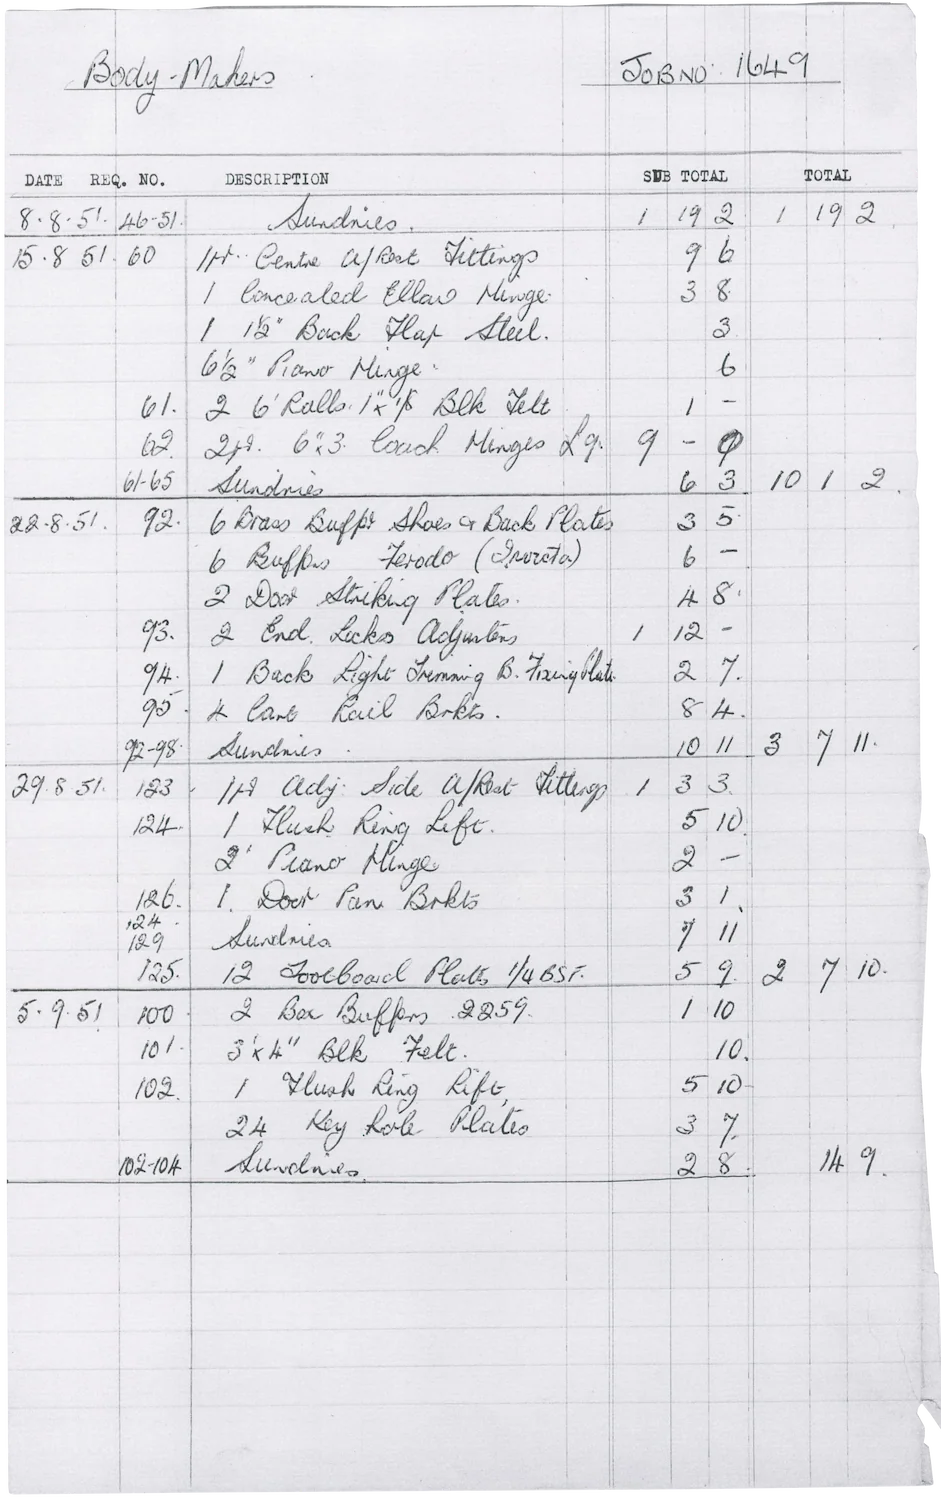 Body-Makers JOB NO. 1649
DATE REQ. NO. DESCRIPTION SUB TOTAL TOTAL
8.8.51. 46-51. Sundries. 1 19 2 1 19 2
15.8.51. 60 1 pr. Centre A/Rest Fittings 9 6
1 Concealed Elbow Hinge. 3 8
1 1½" Back Flap Steel. 3
6½" Piano Hinge. 6
61. 2 6' Rolls. 1" x 1/8 Blk Felt 1 -
62. 2 pr. 6 x 3. Coach Hinges Lg. 9 - 9
61-65 Sundries 6 3 10 1 2.
22.8.51. 92. 6 Brass Buffr Shoes & Back Plates 3 5
6 Buffers Ferodo ( ) 6 -
2 Door Striking Plates. 4 8.
93. 2 End. Locks Adjusters 1 12 -
94. 1 Back Light Trimming B. Fixing Plate. 2 7.
95. 4 Cant Rail Brkts. 8 4.
92-98. Sundries. 10 11 3 7 11.
29.8.51. 123 1 pr Adj. Side A/Rest Fittings 1 3 3.
124. 1 Flush Ring Lift. 5 10
2' Piano Hinge 2 -
126. 1. Door Pan Brkts 3 1.
124.
129 Sundries 7 11
125. 12 Footboard Plates 1/4 BSF. 5 9. 2 7 10.
5.9.51 100 2 Box Buffers 2259. 1 10
101. 3' x 4" Blk Felt. 10.
102. 1 Flush Ring Lift, 5 10
24 Key hole Plates 3 7.
102-104 Sundries. 2 8. 14 9.